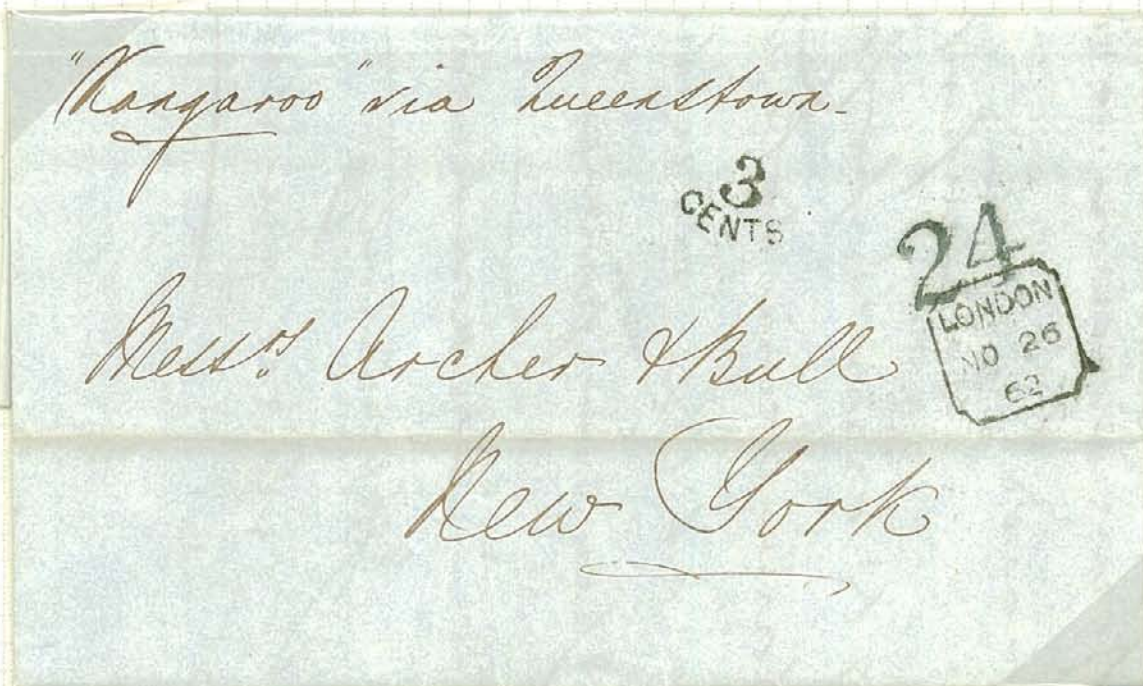 "Kangaroo" via Queenstown-
3
CENTS
24
LONDON
NO 26
62
Messrs. Archer & Bull
New York